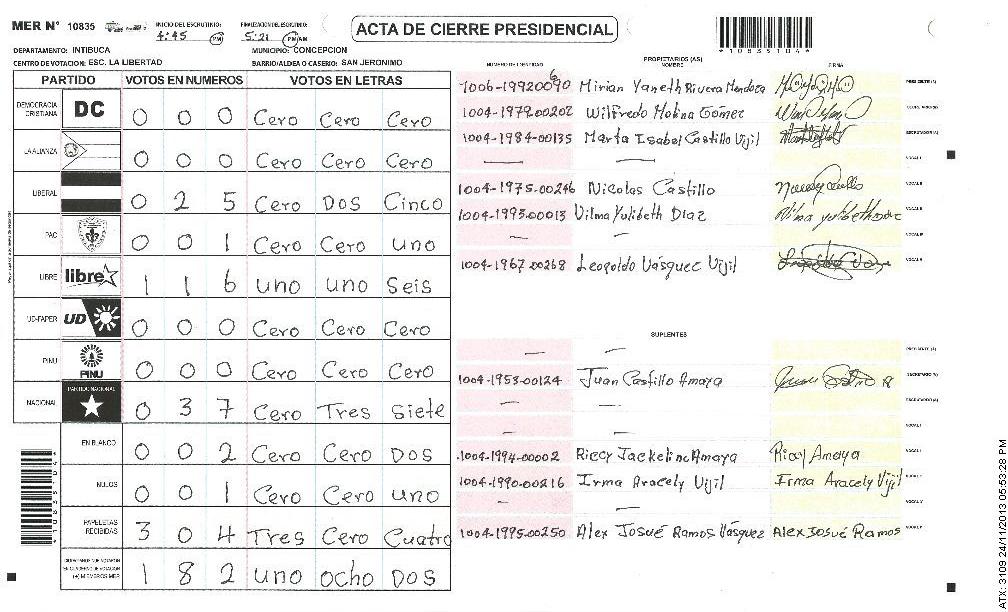 MER N° 10835 INICIO DEL ESCRUTINIO: 4:45 PM FINALIZACION DEL ESCRUTINIO: 5:21 PM AM
ACTA DE CIERRE PRESIDENCIAL
10835104
DEPARTAMENTO: INTIBUCA MUNICIPIO: CONCEPCION
CENTRO DE VOTACION: ESC. LA LIBERTAD BARRIO/ALDEA O CASERIO: SAN JERONIMO
PARTIDO VOTOS EN NUMEROS VOTOS EN LETRAS
DEMOCRACIA CRISTIANA DC 0 0 0 Cero Cero Cero
LA ALIANZA 0 0 0 Cero Cero Cero
LIBERAL 0 2 5 Cero Dos Cinco
PAC 0 0 1 Cero Cero uno
LIBRE libre 1 1 6 uno uno Seis
UD-FAPER UD 0 0 0 Cero Cero Cero
PINU PINU 0 0 0 Cero Cero Cero
NACIONAL PARTIDO NACIONAL 0 3 7 Cero Tres siete
EN BLANCO 0 0 2 Cero Cero Dos
NULOS 0 0 1 Cero Cero uno
PAPELETAS RECIBIDAS 3 0 4 Tres Cero Cuatro
(+) MIEMBROS MER 1 8 2 uno ocho Dos
PROPIETARIOS (AS)
NUMERO DE IDENTIDAD NOMBRE FIRMA
1006-1992 Mirian Yaneth Rivera Mendoza PRESIDENTE (A)
1004-1979-00202 Wilfredo Molina Gómez
1004-1984-00135 Marta Isabel Castillo Vijil SECRETARIO (A)
— — VOCAL I
1004-1975-00246 Nicolas Castillo
1004-1993-00013 Vilma Yulibeth Diaz Vilma yulibeth
— —
1004-1967-00268 Leopoldo Vásquez Vijil
SUPLENTES
— — PRESIDENTE (A)
1004-1953-00124 Juan Castillo Amaya SECRETARIO (A)
— — ESCRUTADOR (A)
— — VOCAL I
1004-1994-00002 Riccy Jackeline Amaya Riccy Amaya
1004-1990-00216 Irma Aracely Vijil Irma Aracely Vijil
— —
1004-1995-00250 Alex Josué Ramos Vásquez Alex Josué Ramos
ATX: 3109 24/11/2013 05:53:28 PM